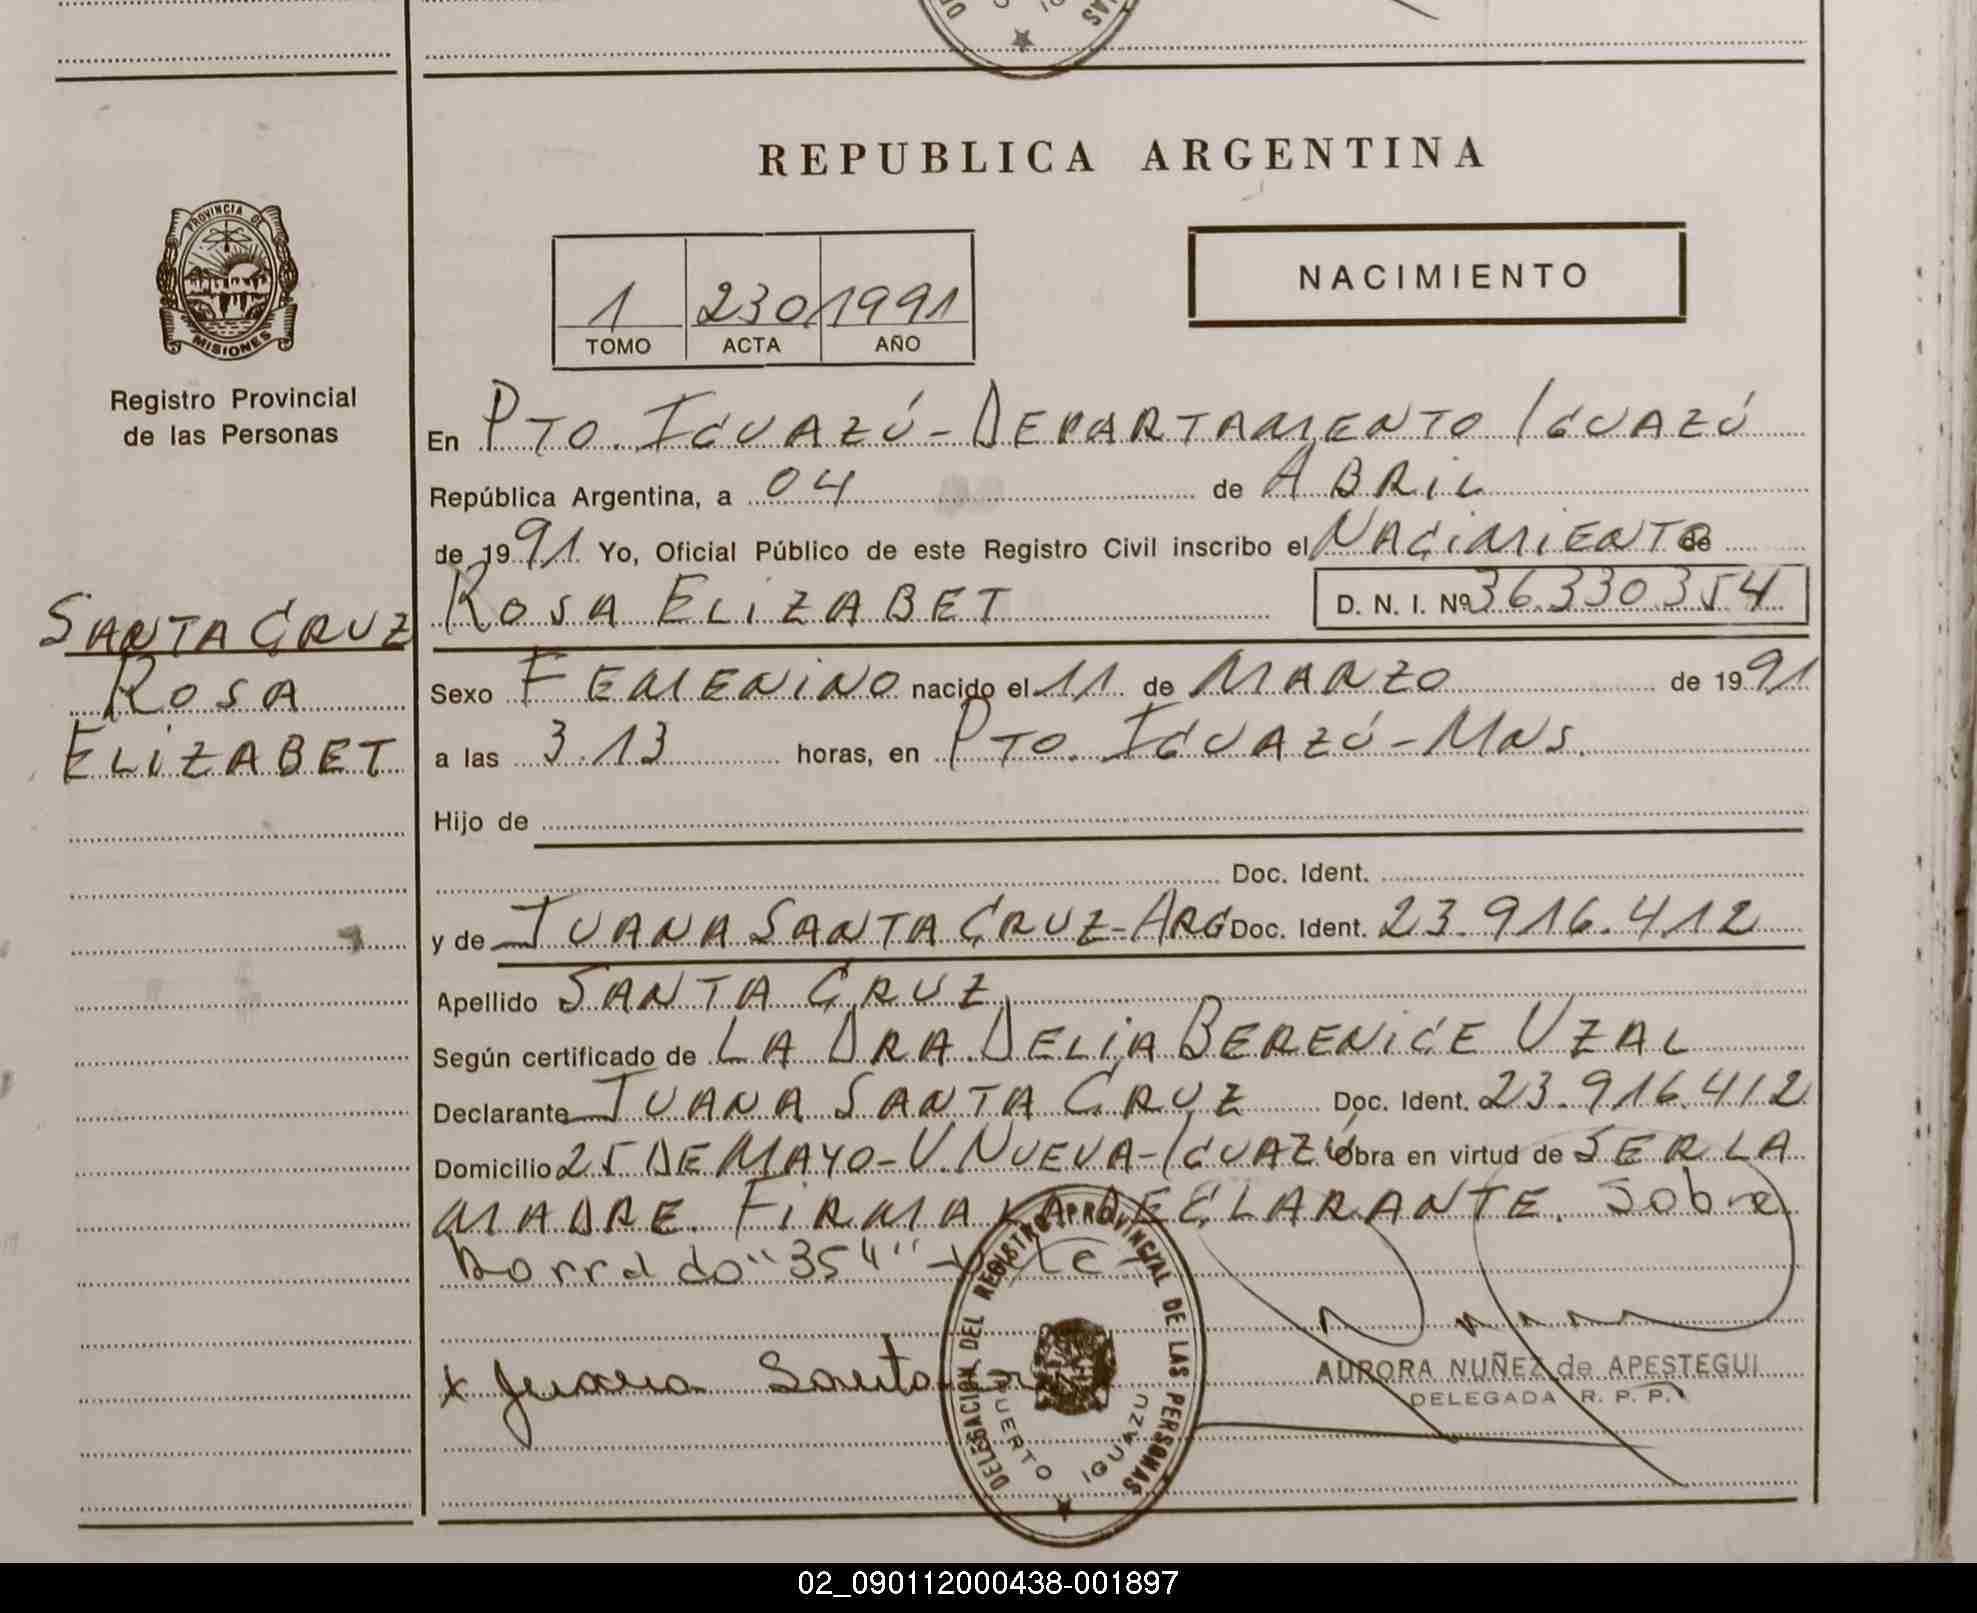 REPUBLICA ARGENTINA
PROVINCIA DE
MISIONES
Registro Provincial
de las Personas
NACIMIENTO
1 230 1991
TOMO ACTA AÑO
En PTO. IGUAZÚ - DEPARTAMENTO IGUAZÚ
República Argentina, a 04 de ABRIL
de 1991 Yo, Oficial Público de este Registro Civil inscribo el NACIMIENTO de
ROSA ELIZABET D. N. I. Nº 36.330.354
SANTA CRUZ
ROSA
ELIZABET
Sexo FEMENINO nacido el 11 de MARZO de 1991
a las 3.13 horas, en PTO. IGUAZÚ - MNS.
Hijo de
Doc. Ident.
y de JUANA SANTA CRUZ - ARG Doc. Ident. 23.916.412
Apellido SANTA CRUZ
Según certificado de LA DRA. DELIA BERENICE UZAL
Declarante JUANA SANTA CRUZ Doc. Ident. 23.916.412
Domicilio 25 DE MAYO - V. NUEVA - IGUAZÚ Obra en virtud de SER LA
MADRE. FIRMA LA DECLARANTE. Sobre
borrado "354"
x Juana Santa
DELEGACION DEL REGISTRO PROVINCIAL DE LAS PERSONAS
PUERTO IGUAZU
AURORA NUÑEZ de APESTEGUI
DELEGADA R. P. P.
02_090112000438-001897